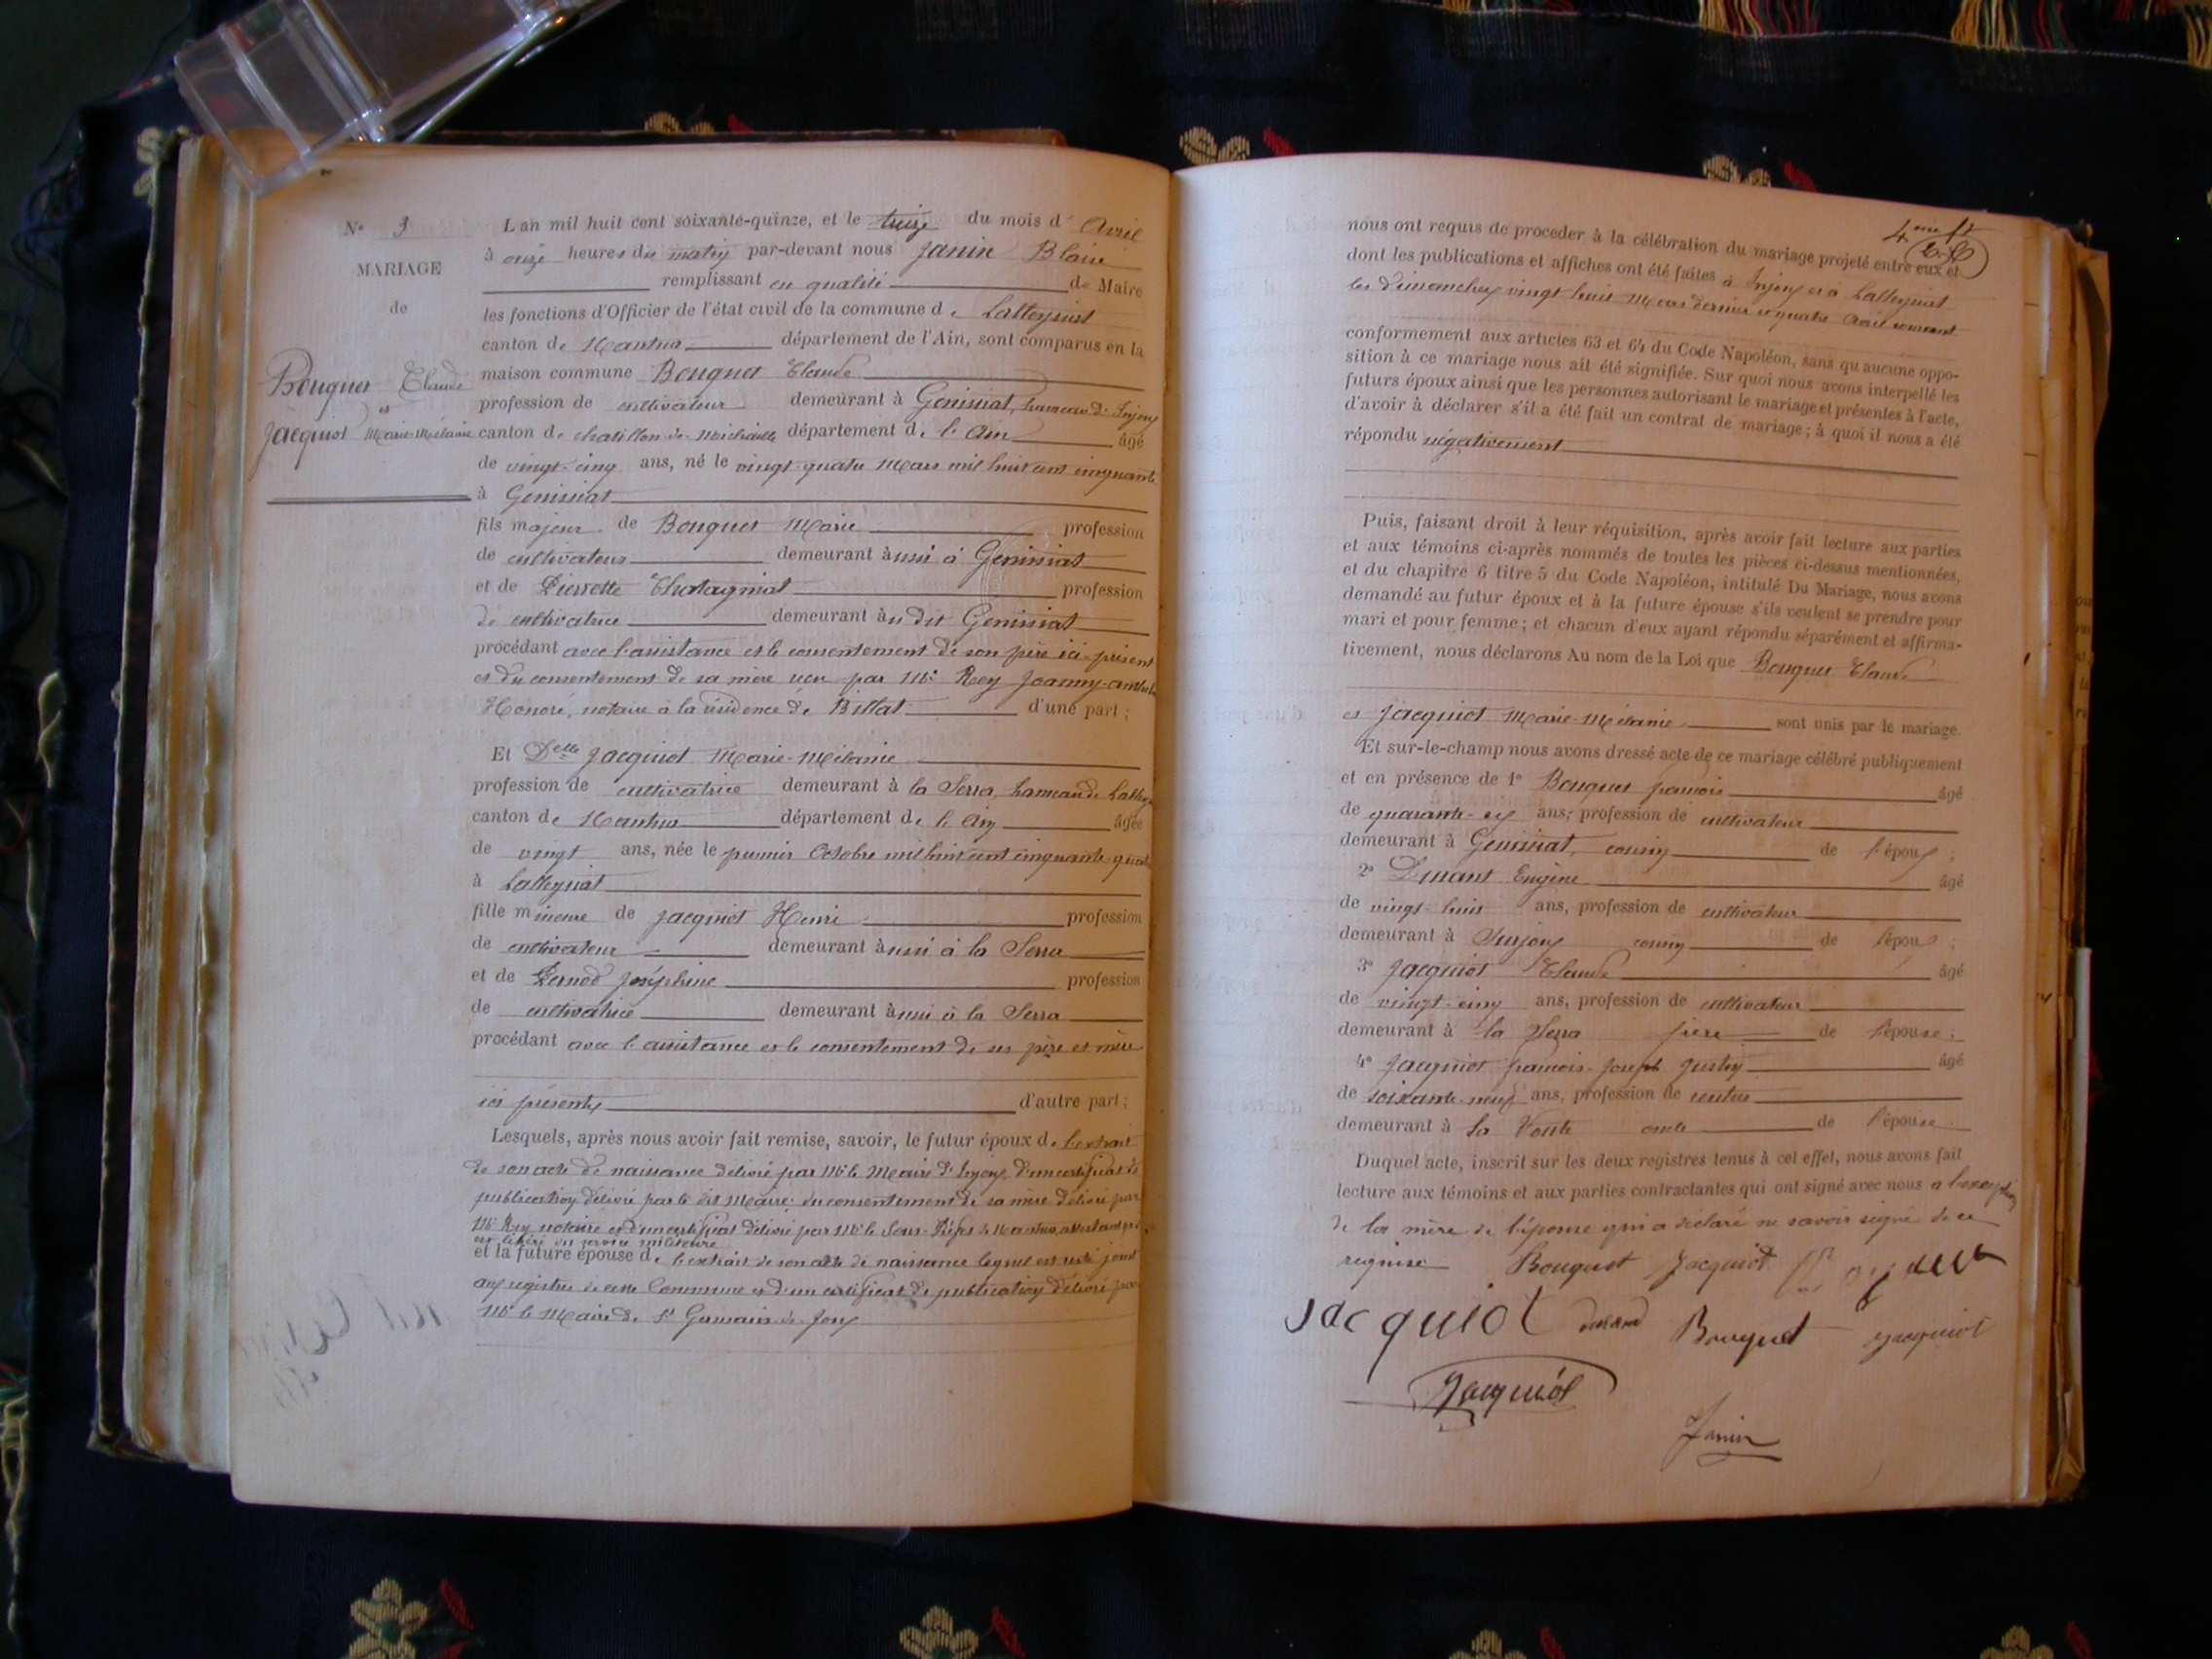 No 3
L'an mil huit cent soixante-quinze, et le treize du mois d'Avril
MARIAGE
de
Bouquet Claude
et
Jacquiot Marie-Mélanie
à onze heures du matin par-devant nous Janin Blaise
remplissant en qualité de Maire
les fonctions d'Officier de l'état civil de la commune de Lalleyriat
canton de Nantua département de l'Ain, sont comparus en la
maison commune Bouquet Claude
profession de cultivateur demeurant à Genissiat, hameau d'Injoux
canton de chatillon-de-Michaille département de l'Ain âgé
de vingt-cinq ans, né le vingt-quatre Mars mil huit cent cinquante
à Genissiat
fils majeur de Bouquet Marie profession
de cultivateur demeurant aussi à Genissiat
et de Pierrette Chatagniat profession
de cultivatrice demeurant au dit Genissiat
procédant avec l'assistance et le consentement de son père ici présent
et du consentement de sa mère reçu par Me Rey Joanny
Honoré, notaire à la résidence de Billiat d'une part;
Et Delle Jacquiot Marie-Mélanie
profession de cultivatrice demeurant à la Serra, hameau de
canton de Nantua département de l'Ain âgée
de vingt ans, née le premier Octobre mil huit cent cinquante-quatre
à Lalleyriat
fille mineure de Jacquiot Henri profession
de cultivateur demeurant aussi à la Serra
et de Pernod Joséphine profession
de cultivatrice demeurant aussi à la Serra
procédant avec l'assistance et le consentement de ses père et mère
ici présents d'autre part;
Lesquels, après nous avoir fait remise, savoir, le futur époux de l'extrait
de son acte de naissance délivré par Mr le Maire d'Injoux, d'un certificat de
publication délivré par le dit Maire; du consentement de sa mère délivré par
Me Rey notaire et d'un certificat délivré par Mr le Sous-Préfet de Nantua attestant qu'il
est libéré du service militaire
et la future épouse de l'extrait de son acte de naissance lequel est resté joint
aux registres de cette Commune et d'un certificat de publication délivré par
Mr le Maire de St Germain-de-Joux
nous ont requis de procéder à la célébration du mariage projeté entre eux et
dont les publications et affiches ont été faites à Injoux et à Lalleyriat
les dimanches vingt huit Mars dernier et quatre Avril courant
conformément aux articles 63 et 64 du Code Napoléon, sans qu'aucune oppo-
sition à ce mariage nous ait été signifiée. Sur quoi nous avons interpellé les
futurs époux ainsi que les personnes autorisant le mariage et présentes à l'acte,
d'avoir à déclarer s'il a été fait un contrat de mariage; à quoi il nous a été
répondu négativement
Puis, faisant droit à leur réquisition, après avoir fait lecture aux parties
et aux témoins ci-après nommés de toutes les pièces ci-dessus mentionnées,
et du chapitre 6 titre 5 du Code Napoléon, intitulé Du Mariage, nous avons
demandé au futur époux et à la future épouse s'ils veulent se prendre pour
mari et pour femme; et chacun d'eux ayant répondu séparément et affirma-
tivement, nous déclarons Au nom de la Loi que Bouquet Claude
et Jacquiot Marie-Mélanie sont unis par le mariage.
Et sur-le-champ nous avons dressé acte de ce mariage célébré publiquement
et en présence de 1° Bouquet françois âgé
de quarante-six ans, profession de cultivateur
demeurant à Genissiat, cousin de l'époux;
2° Durant Eugène âgé
de vingt-huit ans, profession de cultivateur
demeurant à Surjoux cousin de l'époux;
3° Jacquiot Claude âgé
de vingt-cinq ans, profession de cultivateur
demeurant à la Serra frère de l'épouse;
4° Jacquiot françois-Joseph Justin âgé
de soixante-neuf ans, profession de rentier
demeurant à la Voute oncle de l'épouse
Duquel acte, inscrit sur les deux registres tenus à cet effet, nous avons fait
lecture aux témoins et aux parties contractantes qui ont signé avec nous à l'exception
de la mère de l'épouse qui a déclaré ne savoir signer de ce
requise Bouquet Jacquiot
Jacquiot Bouquet Jacquiot
Jacquiot
Janin